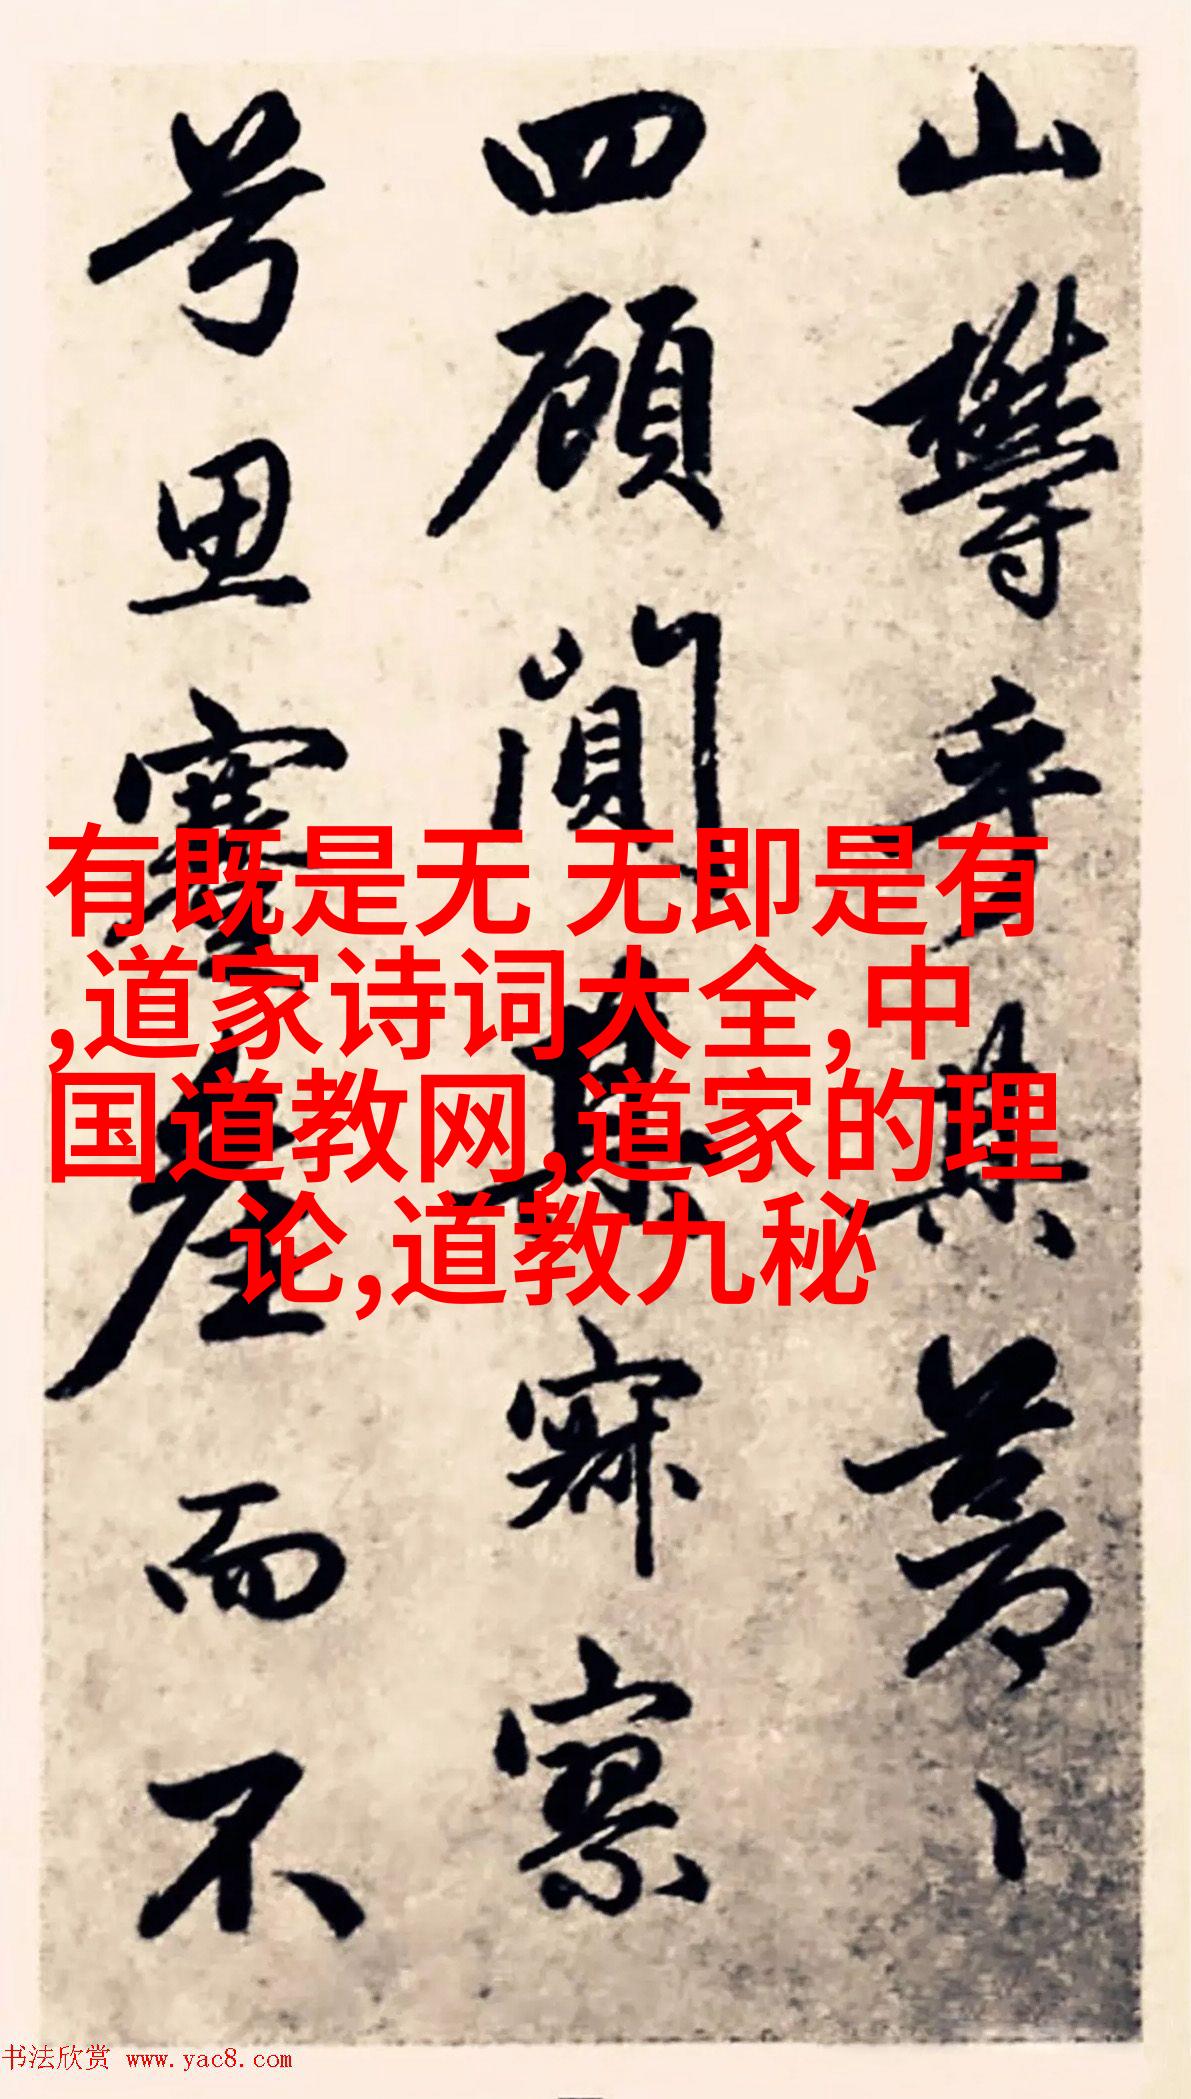 山欝乎其蒼〻
四顧闃其寂寥
兮思蹇產而不
有既是无 无即是有
,道家诗词大全,中
国道教网,道家的理
论,道教九秘
书法欣赏 www.yac8.com